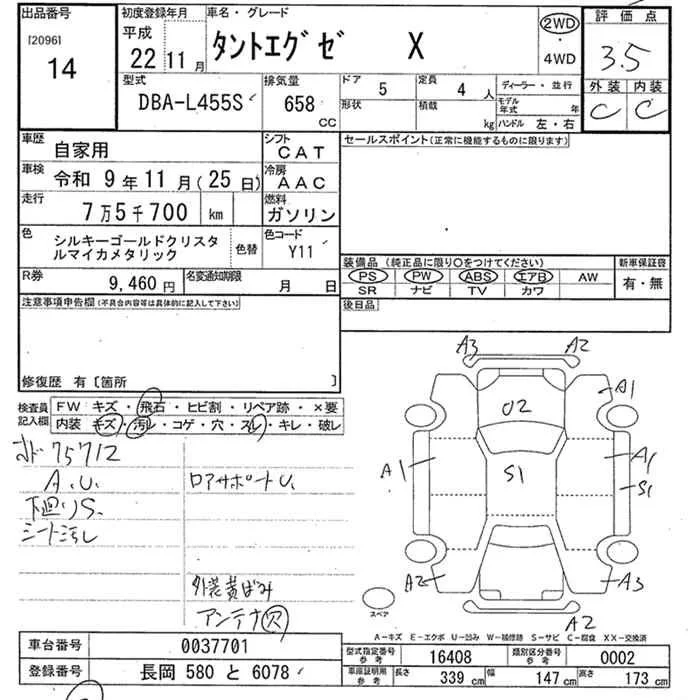 出品番号
[2096]
14
初度登録年月
平成
22 11月
車名・グレード
タントエグゼ X
2WD
・
4WD
評価点
3.5
外装 内装
C C
型式
DBA-L455S
排気量
658
CC
ドア
5
定員
4人
形状
積載
kg
ディーラー・並行
モデル年式
年
ハンドル 左・右
車歴
自家用
シフト
CAT
車検
令和 9年11月(25日)
冷房
AAC
走行
7万5千700 km
燃料
ガソリン
色
シルキーゴールドクリスタ
ルマイカメタリック
色替
色コード
Y11
R券
9,460円
名変通知期限
月 日
セールスポイント(正常に機能するものに限ります)
装備品(純正品に限り○をつけてください)
PS PW ABS エアB AW
SR ナビ TV カワ
新車保証書
有・無
後日品
注意事項申告欄(不具合内容等は具体的に記入して下さい)
修復歴 有〔箇所 〕
検査員
記入欄
FW キズ・飛石・ヒビ割・リペア跡・×要
内装 キズ・汚レ・コゲ・穴・スレ・キレ・破レ
75712
A.U.
下廻りS.
シート汚レ
ロアサポートU.
外装黄ばみ
アンテナ穴
A3
A2
A1
U2
A1
S1
A1
S1
A2
A3
A2
スペア
A-キズ E-エクボ U-凹み W-補修跡 S-サビ C-腐食 XX-交換済
車台番号
0037701
登録番号
長岡 580 と 6078
型式指定番号
参考
16408
類別区分番号
参考
0002
車庫証明用
参考
長さ
339 cm
幅
147 cm
高さ
173 cm